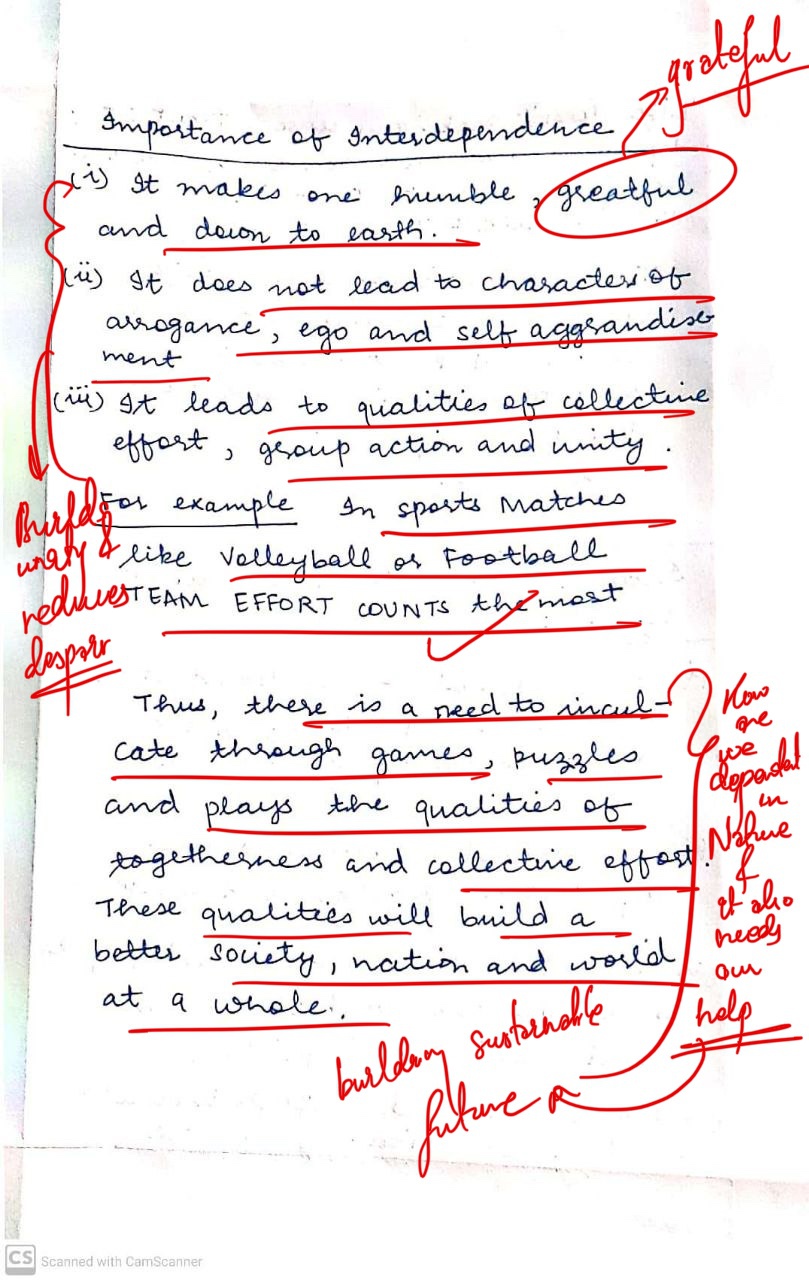 grateful
Importance of Interdependence
(i) It makes one humble, greatful
and down to earth.
(ii) It does not lead to character of
arrogance, ego and self aggrandise-
ment
(iii) It leads to qualities of collective
effort, group action and unity.
For example In sports Matches
like Volleyball or Football
TEAM EFFORT COUNTS the most
Builds
unity &
reduces
despair
Thus, there is a need to incul-
cate through games, puzzles
and plays the qualities of
togetherness and collective effort.
These qualities will build a
better society, nation and world
at a whole.
How
are
we
dependent
in
Nature
&
it also
needs
our
help
building sustainable
future
CS Scanned with CamScanner